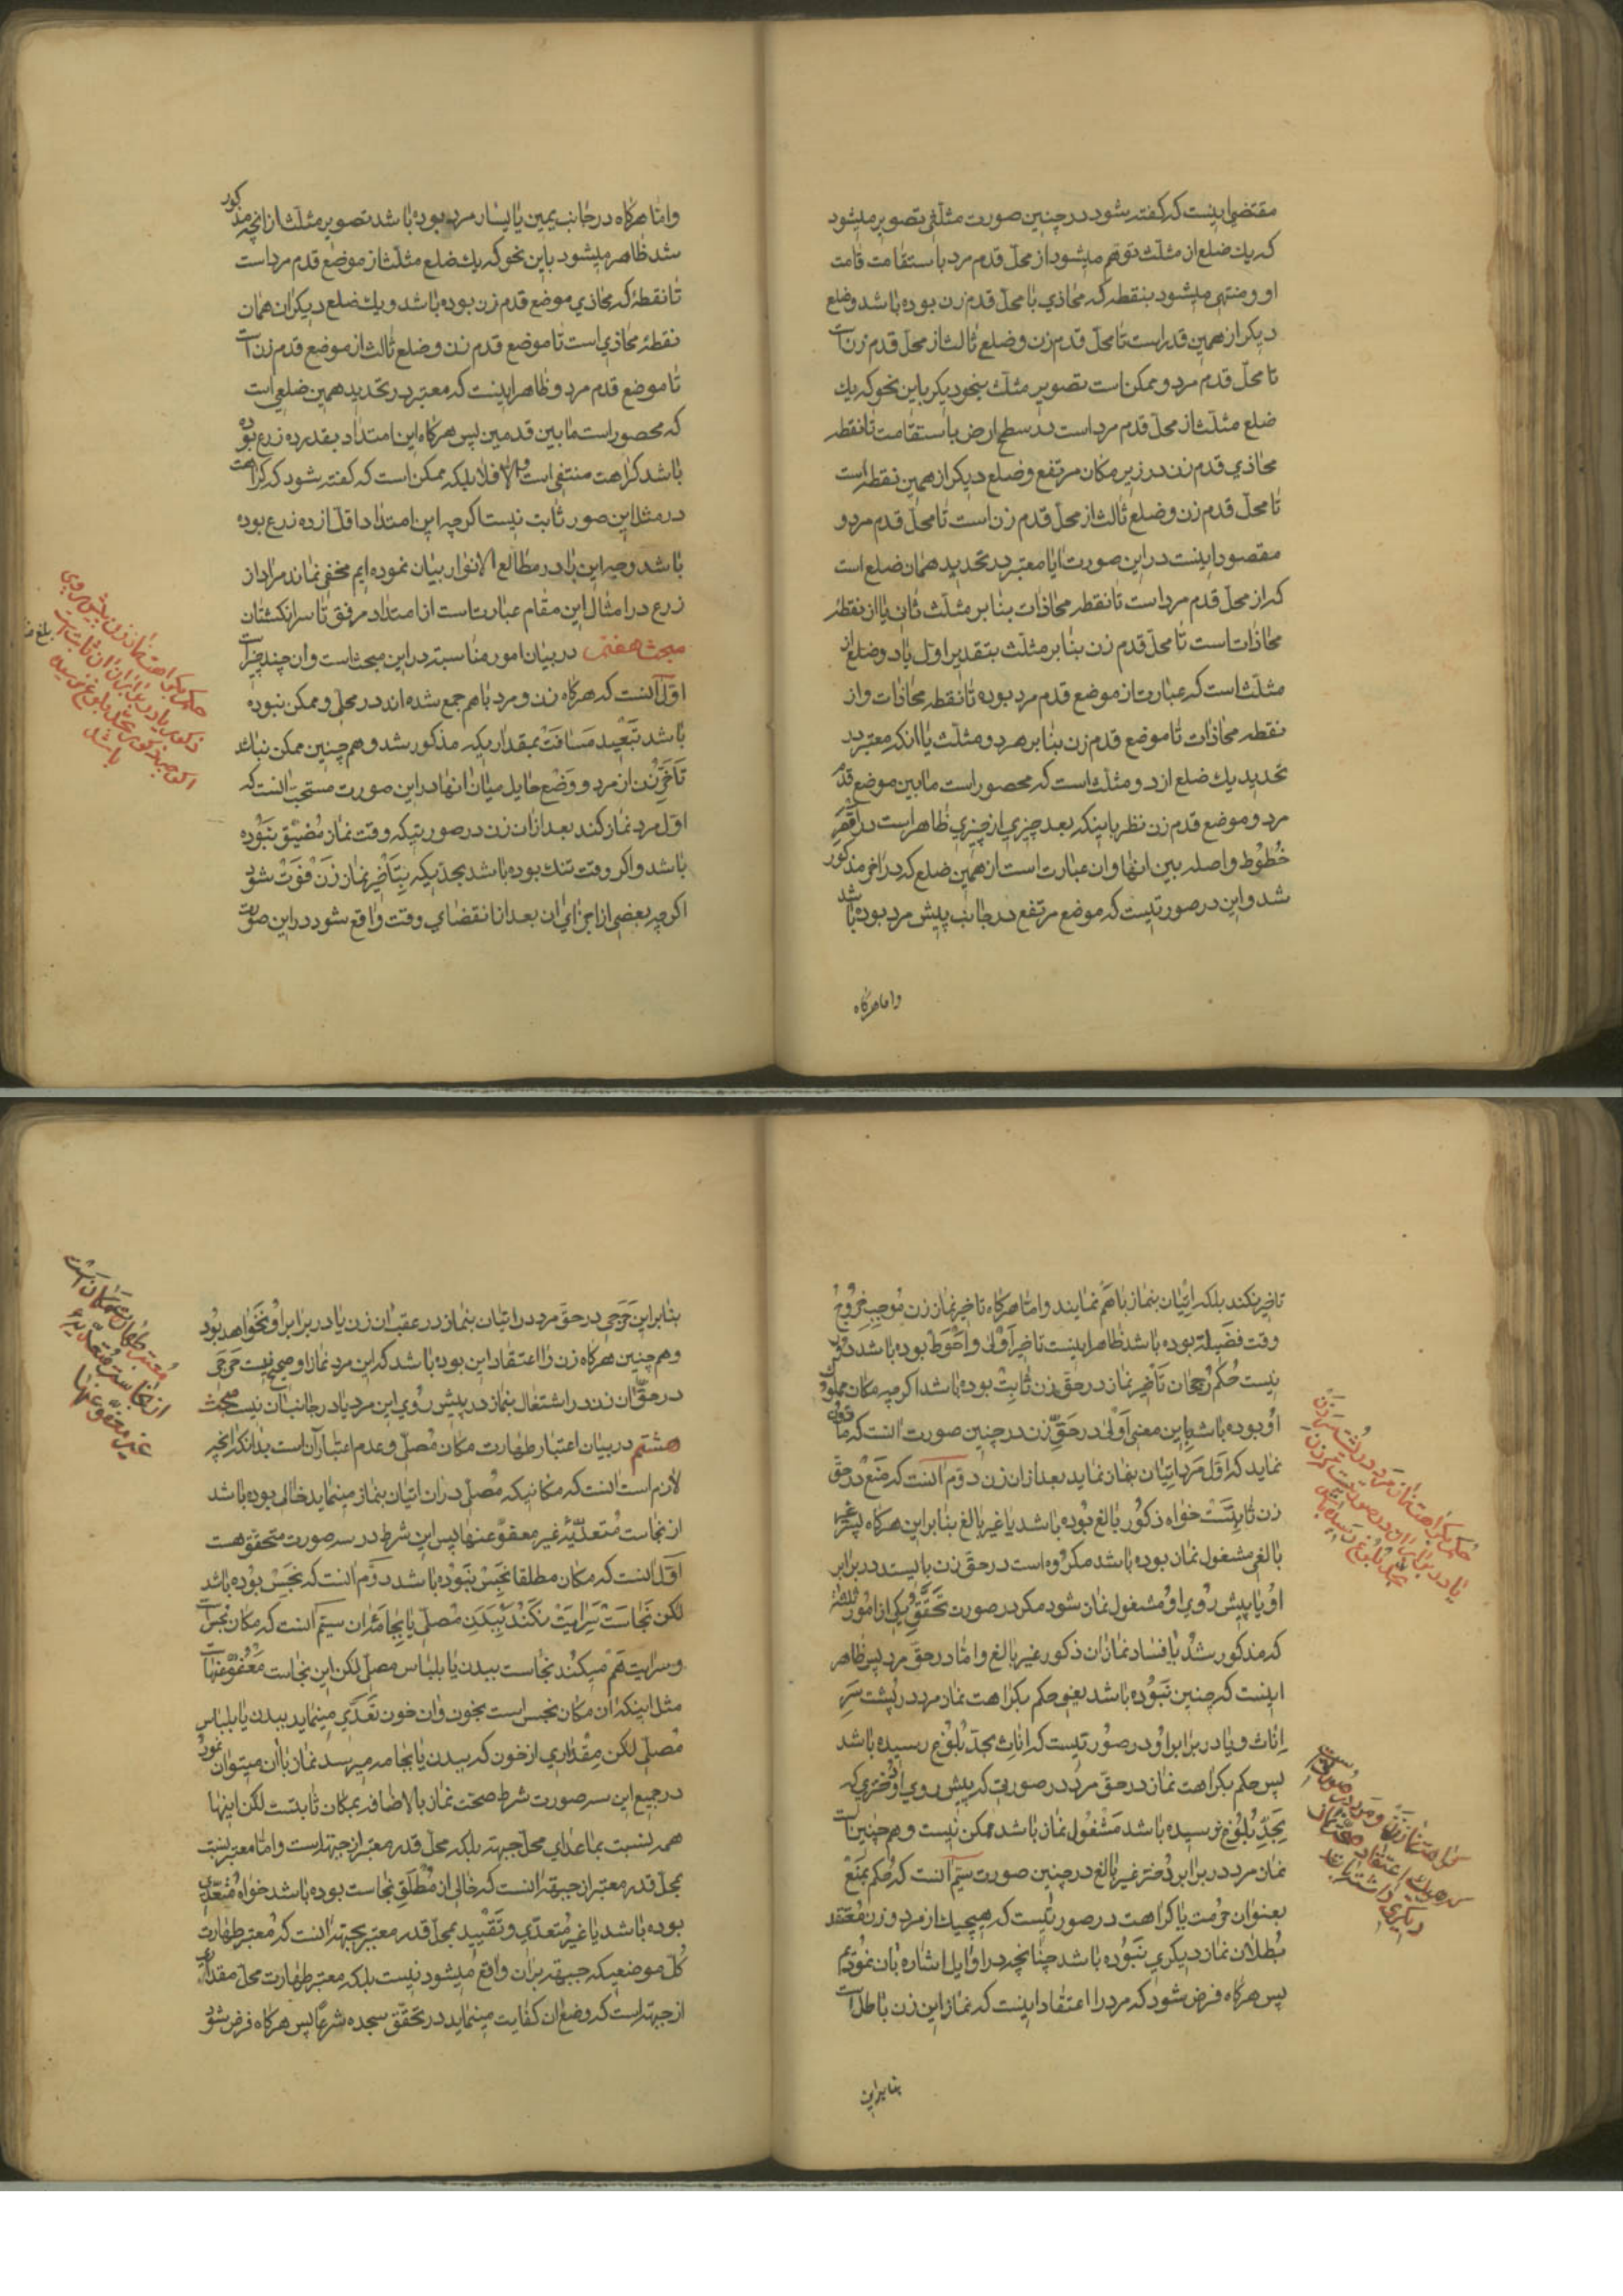 مقتضی اینست که گفته شود در چنین صورت مثلثی تصویر میشود
که یك ضلع از مثلث توهم میشود از محل قدم مرد باستقامت قامت
او و منتهی میشود بنقطه که محاذي با محل قدم زن بوده باشد و ضلع
دیکر از همین قدر است تا محل قدم زن و ضلع ثالث از محل قدم زن است
تا محل قدم مرد و ممکن است تصویر مثلث بنحو دیکر باین نحو که یك
ضلع مثلث از محل قدم مرد است در سطح ارض باستقامت تا نقطه
محاذي قدم زن در زیر مکان مرتفع و ضلع دیکر از همین نقطه است
تا محل قدم زن و ضلع ثالث از محل قدم زن است تا محل قدم مرد و
مقصود اینست در این صورت ایا معتبر در تحدید همان ضلع است
که از محل قدم مرد است تا نقطه محاذات بنا بر مثلث ثانی یا از نقطه
محاذات است تا محل قدم زن بنا بر مثلث بتقدیر اول یا دو ضلع از
مثلث است که عبارت از موضع قدم مرد بوده تا نقطه محاذات و از
نقطه محاذات تا موضع قدم زن بنا بر هر دو مثلث یا انکه معتبر در
تحدید یك ضلع از دو مثلث است که محصور است مابین موضع قدم
مرد و موضع قدم زن نظر باینکه بعد چیزي از چیزي ظاهر است در اقصر
خطوط واصله بین انها و ان عبارت است از همین ضلع که در اخر مذکور
شد و این در صورتیست که موضع مرتفع در جانب پیش مرد بوده باشد
واما هرکاه
واما هرکاه در جانب یمین یا یسار مرد بوده باشد تصویر مثلث از انچه مذکور
شد ظاهر میشود باین نحو که یك ضلع مثلث از موضع قدم مرد است
تا نقطهٔ که محاذي موضع قدم زن بوده باشد و یك ضلع دیکر ان همان
نقطهٔ محاذي است تا موضع قدم زن و ضلع ثالث از موضع قدم زن است
تا موضع قدم مرد و ظاهر اینست که معتبر در تحدید همین ضلعی است
که محصور است مابین قدمین پس هرکاه این امتداد بقدر ده ذرع بوده
باشد کراهت منتفی است والا فلا بلکه ممکن است که گفته شود که کراهت
در مثل این صور ثابت نیست اکرچه این امتداد اقل از ده ذرع بوده
باشد و وجه این را در مطالع الانوار بیان نموده ایم مخفی نماند مراد از
ذرع در امثال این مقام عبارتست از امتداد مرفق تا سر انکشتان
مبحث هفتم در بیان امور مناسبته در این مبحث است و ان چند چیز است
اول آنست که هرکاه زن و مرد باهم جمع شده اند در محلی و ممکن نبوده
باشد تبعید مسافت بمقداریکه مذکور شد و هم چنین ممکن نباشد
تأخر زن از مرد و وضع حایل میان انها در این صورت مستحب انست که
اول مرد نماز کند بعد از ان زن در صورتیکه وقت نماز مضیق نبوده
باشد واکر وقت تنك بوده باشد بحدیکه بتأخیر نماز زن فوت شود
اکرچه بعضی از اجزاي ان بعد از انقضاي وقت واقع شود در این صورت
حکم بکراهت نماز زن پیش روي
ذکور یا در برابر ان ثابت است
اکرچه ذکور بحد بلوغ نرسیده
باشد
تاخیر نکند بلکه اتیان بنماز باهم نمایند واما هرکاه تاخیر نماز زن موجب خروج
وقت فضیلة بوده باشد ظاهر اینست تاخیر اولی و احوط بوده باشد دور
نیست حکم رجحان تاخیر نماز در حق زن ثابت بوده باشد اکرچه مکان مملوك
او بوده باشد باین معنی اولی در حق زن در چنین صورت انست که
نماید که اول مرد اتیان بنماز نماید بعد از ان زن دوم آنست که منع در حق
زن ثابتست خواه ذکور بالغ بوده باشد یا غیر بالغ بنا بر این هرکاه پسر غیر
بالغی مشغول نماز بوده باشد مکروه است در حق زن بایستد در برابر
او یا پیش روي او و مشغول نماز شود مکر در صورت تحقق یکی از امور ثلثه
که مذکور شد یا فساد نماز ان ذکور غیر بالغ واما در حق مرد پس ظاهر
اینست که چنین نبوده باشد یعنی حکم بکراهت نماز مرد در پشت سر
اناث و یا در برابر او در صورتیست که اناث بحد بلوغ رسیده باشد
پس حکم بکراهت نماز در حق مرد در صورتی که پیش روي او دختري که
بحد بلوغ نرسیده باشد مشغول نماز باشد ممکن نیست و هم چنین است
نماز مرد در برابر دختر غیر بالغ در چنین صورت سیم آنست که حکم بمنع
بعنوان حرمت یا کراهت در صورتیست که هیچیك از مرد و زن معتقد
بطلان نماز دیکري نبوده باشد چنانچه در اوایل اشاره بان نمودیم
پس هرکاه فرض شود که مرد را اعتقاد اینست که نماز این زن باطل است
بنابراین
حکم بکراهت نماز مرد در پشت سر زن
یا در برابر او در صورتیست که زن
بحد بلوغ رسیده باشد
کراهت نماز زن و مرد در صورتیست
که هریك اعتقاد صحت نماز
دیکري داشته باشد
بنابراین حرجی در حق مرد در اتیان بنماز در عقب ان زن یا در برابر او نخواهد بود
وهم چنین هرکاه زن را اعتقاد این بوده باشد که این مرد نماز او صحیح نیست حرجی
در حق ان زن در اشتغال بنماز در پیش روي این مرد یا در جانب آن نیست مبحث
هشتم در بیان اعتبار طهارت مکان مصلی و عدم اعتبار آن است بدانکه انچه
لازم است انست که مکانیکه مصلی در ان اتیان بنماز مینماید خالی بوده باشد
از نجاست متعدیهٔ غیر معفو عنها پس این شرط در سه صورت متحقق هست
اول انست که مکان مطلقا نجس نبوده باشد دوم انست که نجس بوده باشد
لکن نجاست سرایت نکند ببدن مصلی یا بجامهٔ ان سیم آنست که مکان نجس است
و سرایت هم میکند نجاست ببدن یا بلباس مصلی لکن این نجاست معفو عنها است
مثل اینکه ان مکان نجس است بخون و ان خون تعدي مینماید ببدن یا بلباس
مصلی لکن مقداري از خون که ببدن یا بجامه میرسد نماز با ان میتوان نمود
در جمیع این سه صورت شرط صحت نماز بالاضافه بمکان ثابتست لکن اینها
همه نسبت بماعداي محل جبهه بلکه محل قدر معتبر از جبهه است واما معتبر نسبت
بمحل قدر معتبر از جبهة انست که خالی از مطلق نجاست بوده باشد خواه متعدي
بوده باشد یا غیر متعدي و تقیید بمحل قدر معتبر بجهة انست که معتبر طهارت
کل موضعیکه جبهه بر ان واقع میشود نیست بلکه معتبر طهارت محل مقداري
از جبهه است که وضع ان کفایت مینماید در تحقق سجده شرعا پس هرکاه فرض شود
معتبر طهارت مکان است
از نجاست متعدیهٔ
غیر معفو عنها